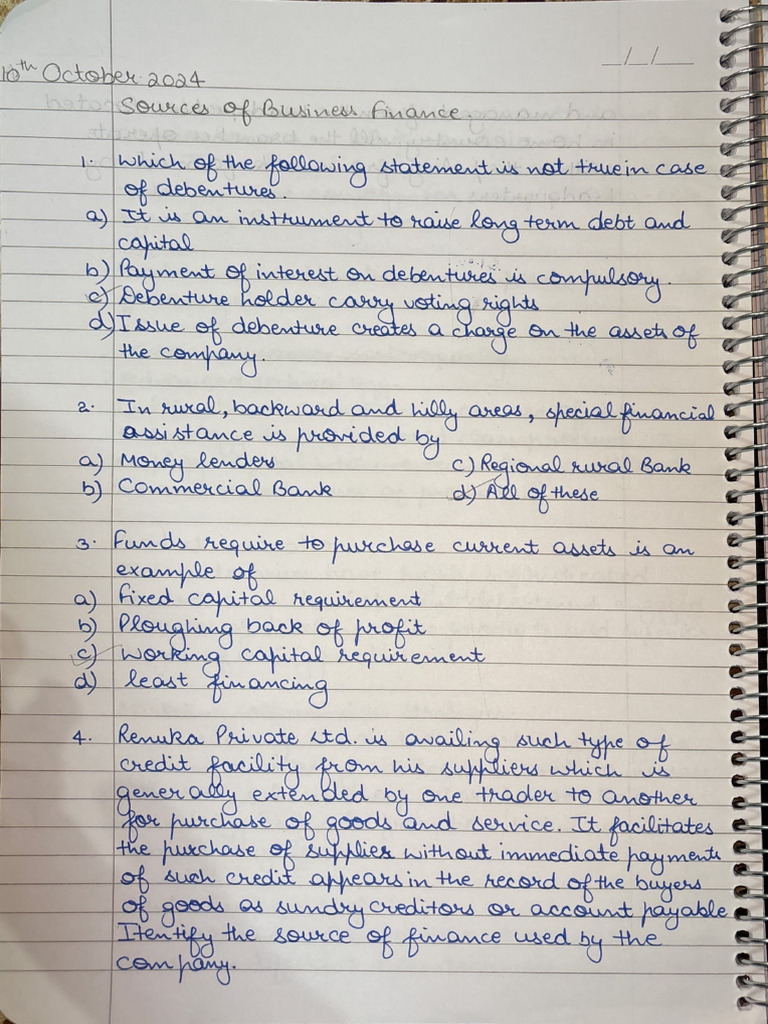 10th October 2024
Sources of Business Finance.
1. Which of the following statement is not true in case
of debentures.
a) It is an instrument to raise long term debt and
capital
b) Payment of interest on debentures is compulsory.
c) Debenture holder carry voting rights
d) Issue of debenture creates a charge on the assets of
the company.
2. In rural, backward and hilly areas, special financial
assistance is provided by
a) Money lenders c) Regional rural Bank
b) Commercial Bank d) All of these
3. Funds require to purchase current assets is an
example of
a) fixed capital requirement
b) Ploughing back of profit
c) working capital requirement
d) least financing
4. Renuka Private Ltd. is availing such type of
credit facility from his suppliers which is
generally extended by one trader to another
for purchase of goods and service. It facilitates
the purchase of supplies without immediate payments
of such credit appears in the record of the buyers
of goods as sundry creditors or account payable
Itentify the source of finance used by the
company.